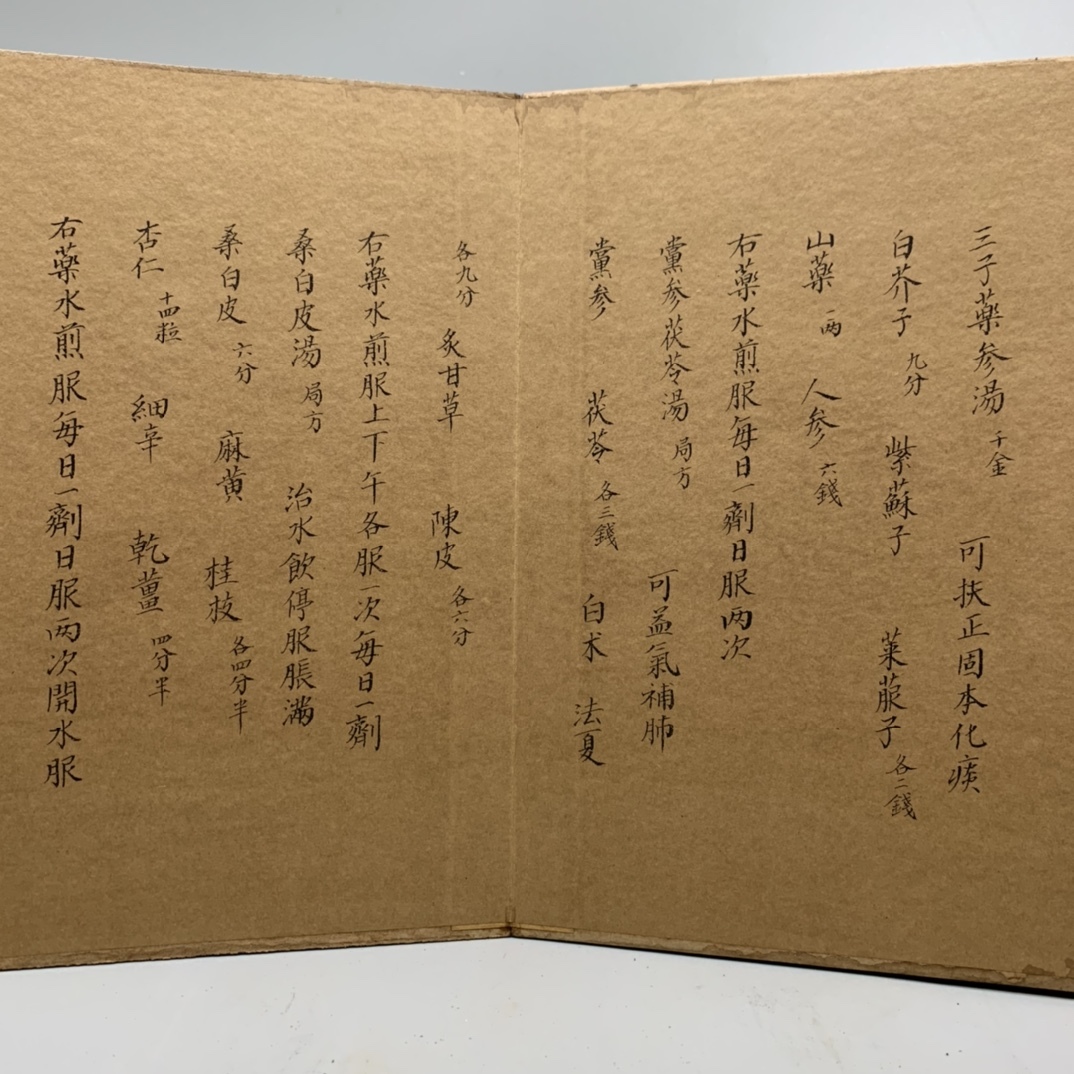 三子藥参湯 千金 可扶正固本化痰
白芥子 九分 紫蘇子 萊菔子 各二錢
山藥 一两 人参 六錢
右藥水煎服每日一劑日服两次
黨参茯苓湯 局方 可益氣補肺
黨参 茯苓 各三錢 白术 法夏
各九分 炙甘草 陳皮 各六分
右藥水煎服上下午各服一次每日一劑
桑白皮湯 局方 治水飲停服脹滿
桑白皮 六分 麻黄 桂枝 各四分半
杏仁 十四粒 細辛 乾薑 四分半
右藥水煎服每日一劑日服两次開水服